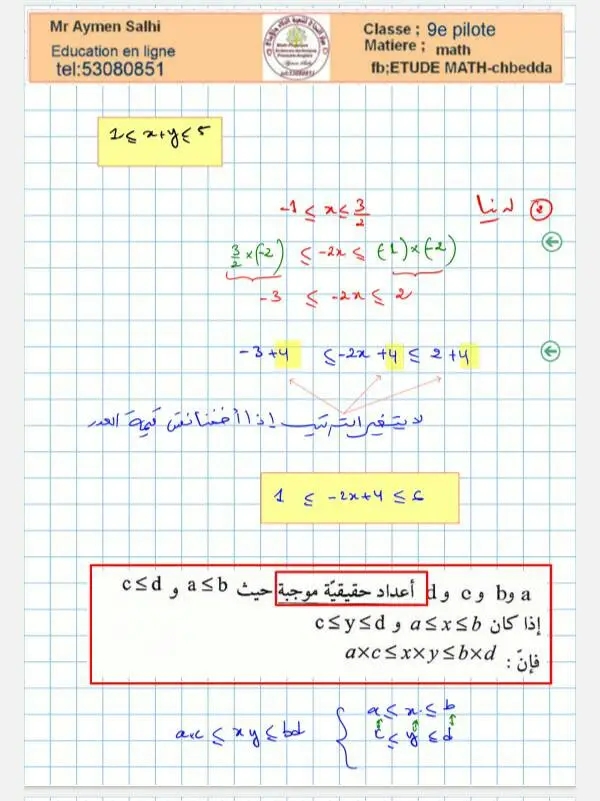 Mr Aymen Salhi
Education en ligne
tel:53080851
Classe ; 9e pilote
Matiere ; math
fb;ETUDE MATH-chbedda
1 ≤ x+y ≤ 5
② لدينا
-1 ≤ x ≤ 3/2
3/2 × (-2) ≤ -2x ≤ (-1) × (-2)
-3 ≤ -2x ≤ 2
-3+4 ≤ -2x+4 ≤ 2+4
لا يتغير الترتيب إذا أضفنا نفس قيمة العدد
1 ≤ -2x+4 ≤ 6
a و b و c و d أعداد حقيقيّة موجبة حيث a≤b و c≤d
إذا كان a≤x≤b و c≤y≤d
فإنّ : a×c≤x×y≤b×d
a ≤ x ≤ b
c ≤ y ≤ d
a×c ≤ xy ≤ bd